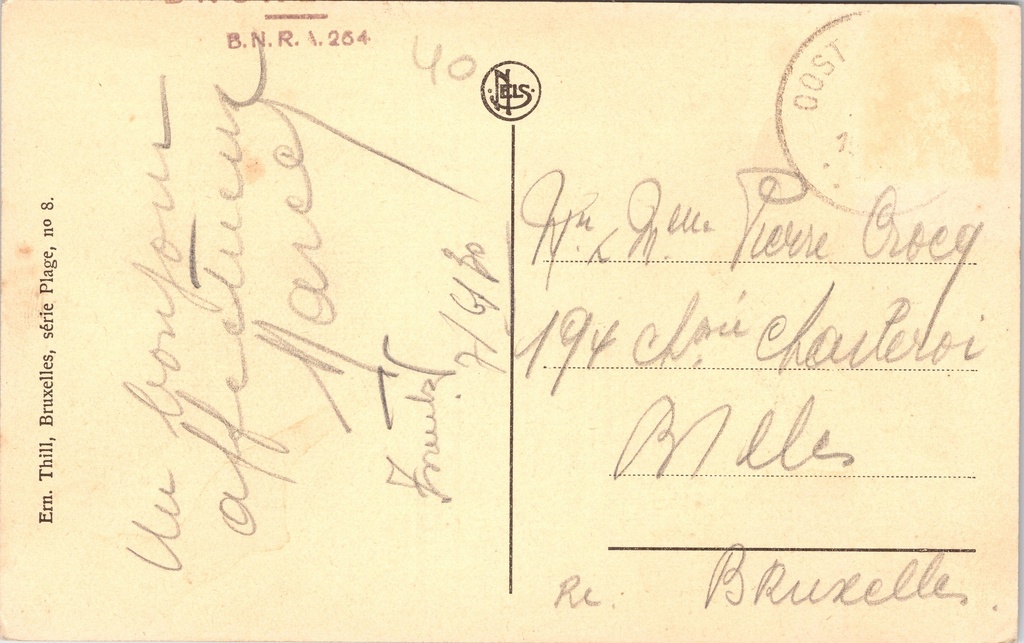 B.N.R. A. 264
40
NELS
OOST
Ern. Thill, Bruxelles, série Plage, nº 8.
Un bonjour
affectueux
Marcel
7/6/30
Mr & Mme Pierre Crocq
194 Chée Charleroi
Bxlles
Re. Bruxelles.